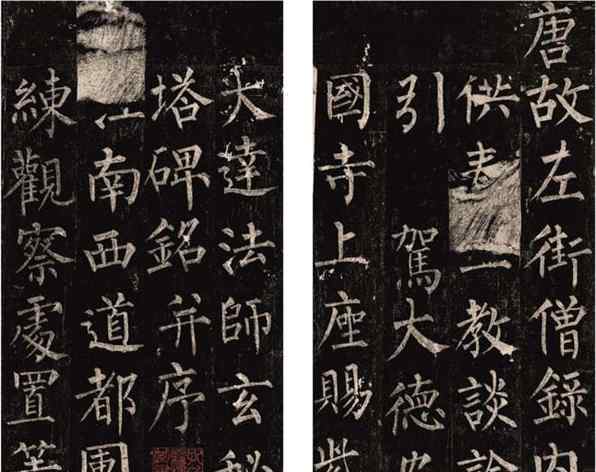 唐故左街僧錄内
供奉 教談論
引駕大德
國寺上座賜紫
大達法師玄秘
塔碑銘并序
南西道都團
練觀察處置等